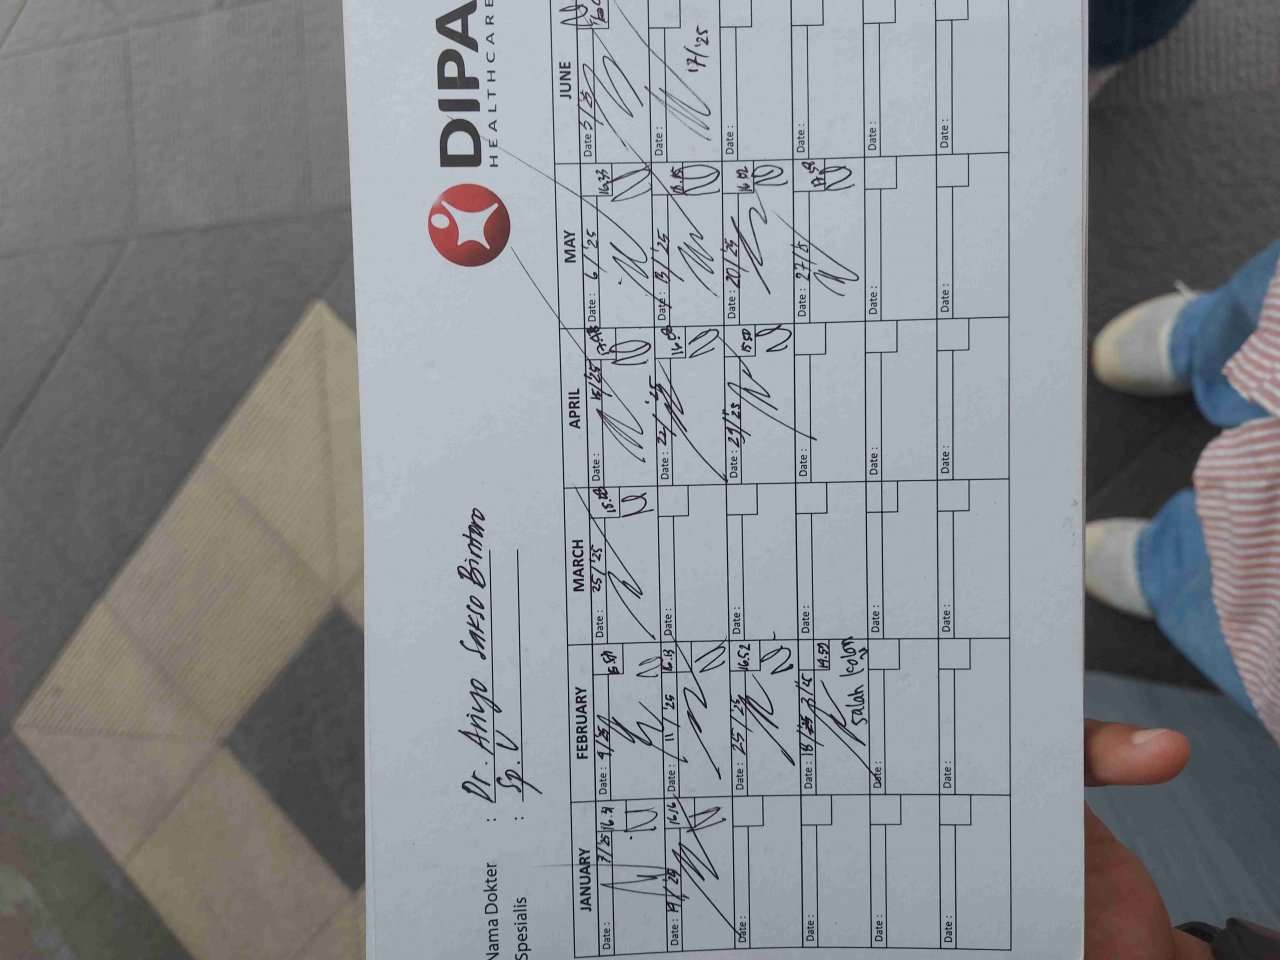 DIPA
HEALTHCARE
Nama Dokter : Dr. Ariyo Sakso Bintoro
Spesialis : Sp. U
JANUARY FEBRUARY MARCH APRIL MAY JUNE
Date : 7/25 16.31 Date : 4/25 Date : 25/'25 Date : 15/'25 Date : 6/'25 16.33 Date : 3/25
Date : 16.16 Date : 11/25 16.13 Date : Date : 22/'25 Date : 13/'25 Date : 17/'25
Date : Date : 25/25 16.52 Date : Date : 29/'25 15.50 Date : 20/'25 16.02 Date :
Date : Date : 18/25 3/15 19.59 Date : Date : Date : 27/5 17.58 Date :
salah kolom
Date : Date : Date : Date : Date : Date :
Date : Date : Date : Date : Date : Date :